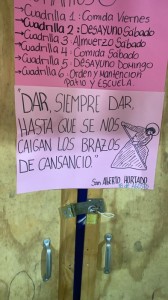 Cuadrilla 1: Comida Viernes
Cuadrilla 2: Desayuno Sábado
Cuadrilla 3: Almuerzo Sábado
Cuadrilla 4: Comida Sábado
Cuadrilla 5: Desayuno Domingo
Cuadrilla 6: Orden y Mantención
Patio y Escuela.
"DAR, SIEMPRE DAR,
HASTA QUE SE NOS
CAIGAN LOS BRAZOS
DE CANSANCIO."
San ALBERTO HURTADO